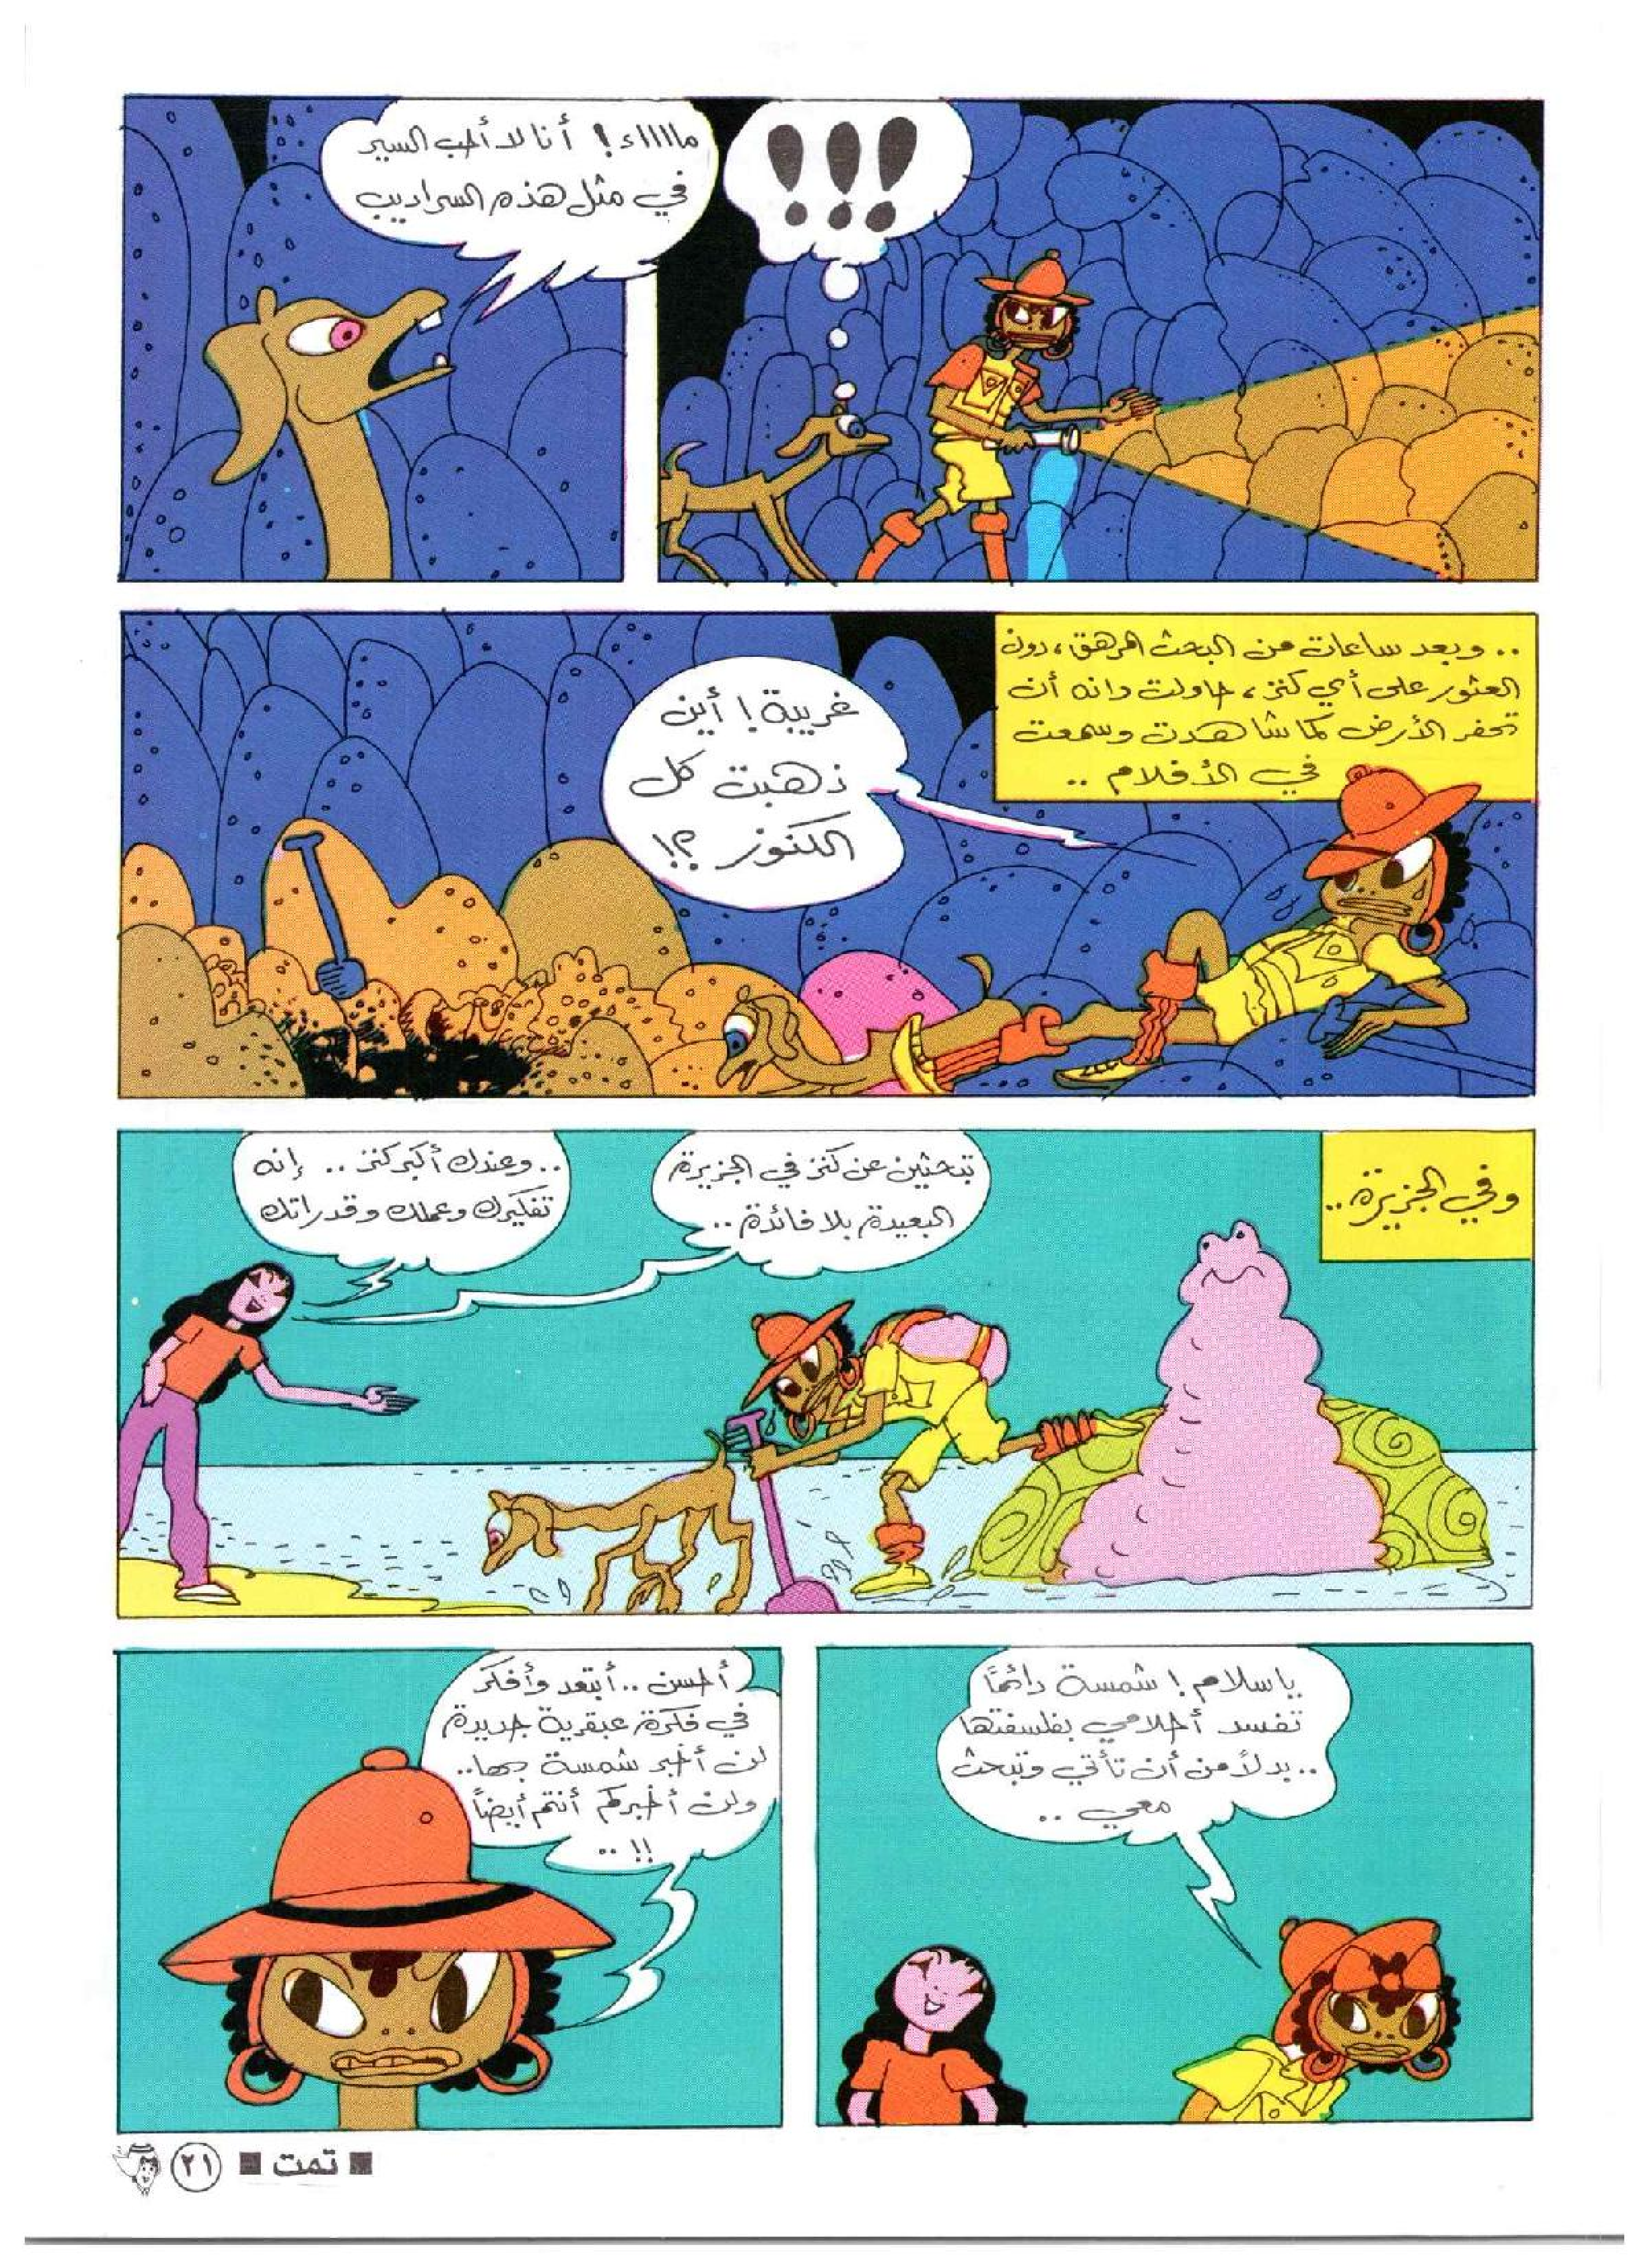 !!!
مااااء! أنا لا أحب السير
في مثل هذه السراديب
.. وبعد ساعات من البحث المرهق، دون
العثور على أي كنز، حاولت دانه أن
تحفر الأرض كما شاهدت وسمعت
في الأفلام ..
غريبة! أين
ذهبت كل
الكنوز؟!
وفي الجزيرة..
تبحثين عن كنز في الجزيرة
البعيدة بلا فائدة..
..وعندك أكبر كنز.. إنه
تفكيرك وعملك وقدراتك
يا سلام! شمسة دائمًا
تفسد أحلامي بفلسفتها
..بدلاً من أن تأتي وتبحث
معي ..
أحسن.. أبتعد وأفكر
في فكرة عبقرية جديدة
لن أخبر شمسة بها..
ولن أخبركم أنتم أيضاً
!! ..
■ تمت ■ ٢١